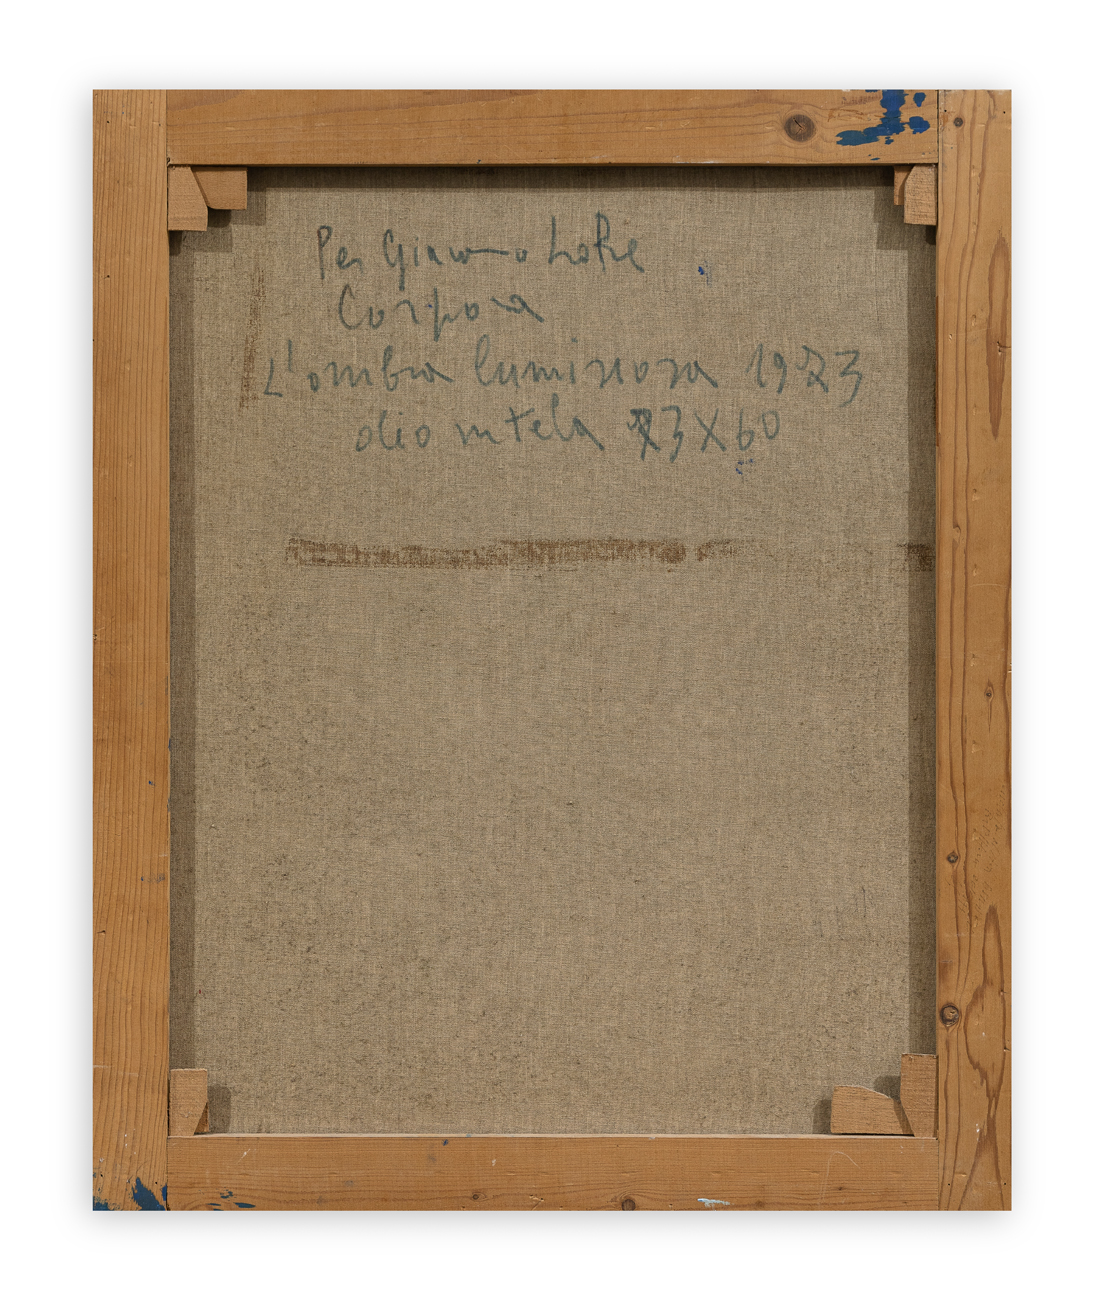 Per Giacomo
Corpora
L'ombra luminosa 1973
olio su tela 73X60